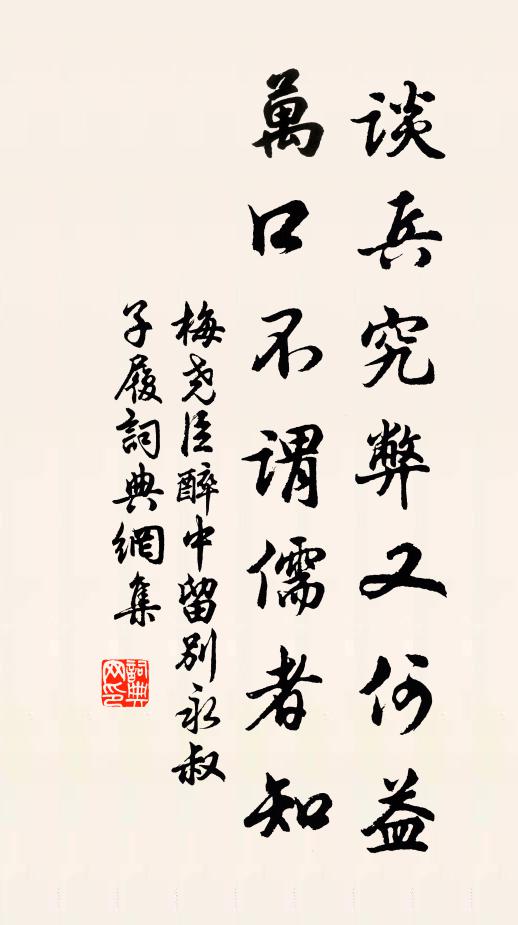 談兵究弊又何益
萬口不謂儒者知
梅尧臣醉中留别永叔
子履詞典網集
詞典网印